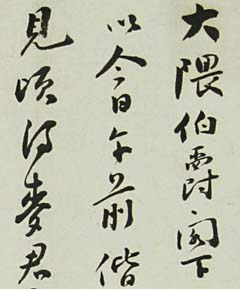 大隈伯爵閣下
以今日午前偕
見頃得麥君